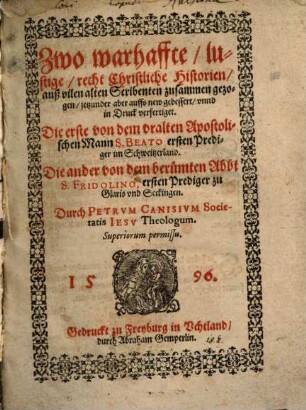 Zwo warhaffte / lu-
stige / recht Christliche Historien /
auß vilen alten Scribenten zusammen gezo-
gen / jetzunder aber auffs new gebessert / vnnd
in Druck verfertiget.
Die erste von dem vralten Apostoli-
schen Mann S. BEATO ersten Predi-
ger im Schweitzerland.
Die ander von dem berümten Abbt
S. FRIDOLINO, ersten Prediger zu
Glaris vnd Seckingen.
Durch PETRVM CANISIVM Socie-
tatis IESV Theologum.
Superiorum permissu.
1596.
Gedruckt zu Freyburg in Vchtland /
durch Abraham Gemperlin.